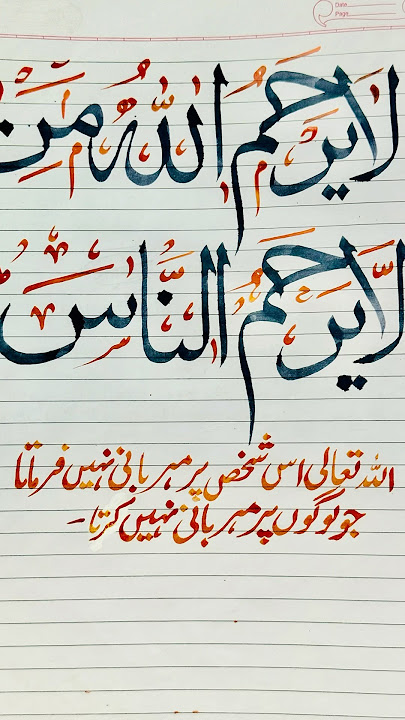 Date
Page
لَا يَرْحَمُ اللّٰهُ مَنْ
لَّا يَرْحَمُ النَّاسَ
اللہ تعالٰی اس شخص پر مہربانی نہیں فرماتا
جو لوگوں پر مہربانی نہیں کرتا۔